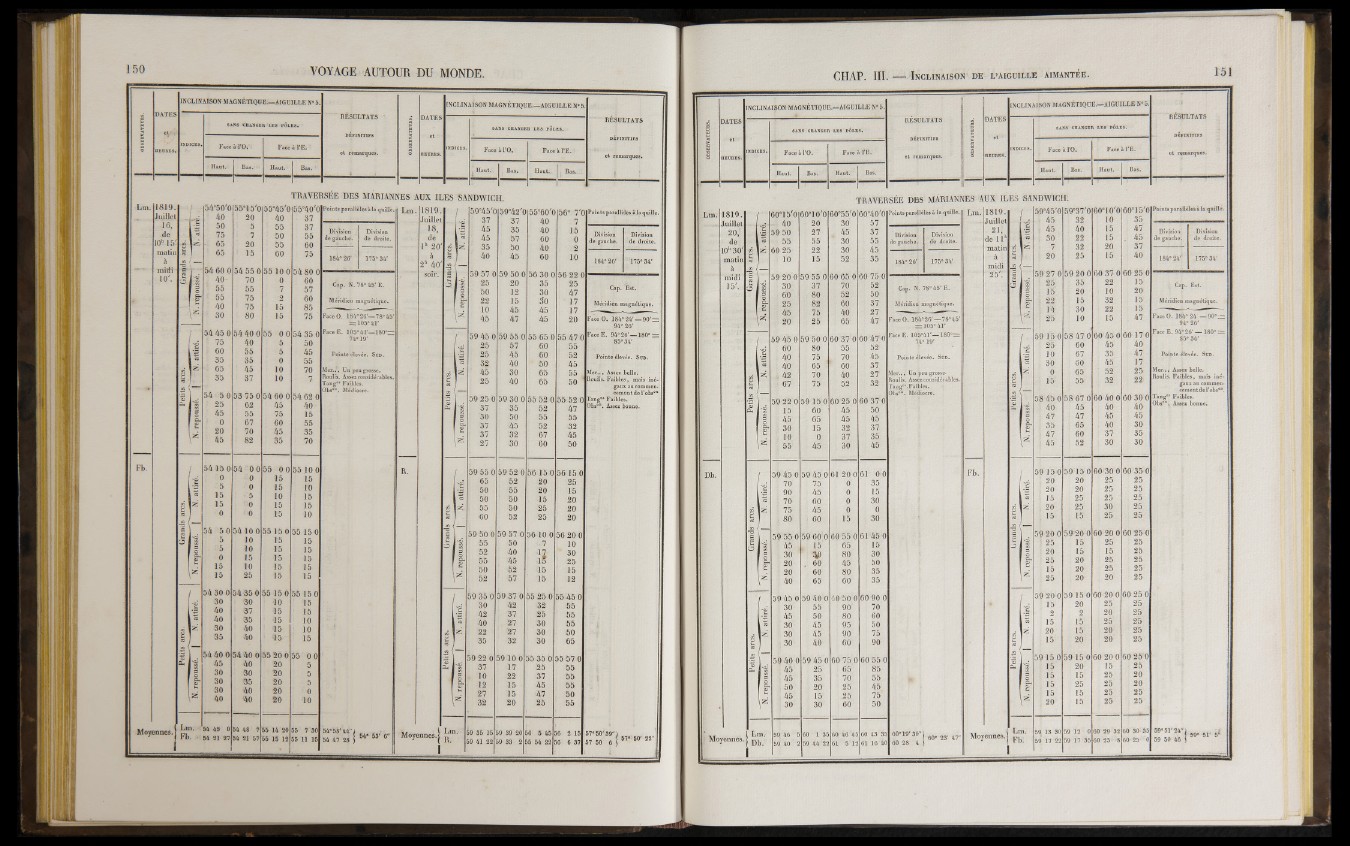 150
VOYAGE AUTOUR DU MONDE.
INCLINAISON MAGNÉTIQUE.—AIGUILLE N° 5.
SANS CHANGER LES PÔLES.
DATES
et
HEURES.
INDICES.
Face à l'O.
Face à l'E.
Haut.
Bas.
Haut.
Bas.
RÉSULTATS
DÉFINITIFS
et remarques.
INCLINAISON MAGNÉTIQUE.—AIGUILLE N° 5.
SANS CHANGER LES PÔLES.
DATES
et
HEURES.
INDICES.
Face à l'O.
Face à l'E.
Haut.
Bas.
Haut.
Bas.
RÉSULTATS
DÉFINITIFS
et remarques.
TRAVERSÉE DES MARIANNES AUX ILES SANDWICH.
Lm.
1819.
Juillet
16,
de
10h 15'
matin
à
midi
10'.
Grands arcs.
N. attiré.
54°50'0 55°15'0 55°45'0 55°40'0
40 20 40 37
50 5 55 37
75 7 50 55
65 20 55 60
65 15 60 75
N. repoussé.
54 60 0 54 55 0 55 10 0 54 80 0
40 70 0 60
55 55 7 57
55 75 2 60
40 75 15 85
30 80 15 75
Petits arcs.
N. attiré.
54 45 0 54 40 0 55 0 0 54 35 0
75 40 5 50
60 55 5 45
35 35 0 55
65 45 10 70
35 37 10 7
N. repoussé.
54 5 0 53 75 0 54 60 0 54 62 0
25 62 45 40
45 55 75 15
0 67 60 55
20 70 45 35
45 82 35 70
Points parallèles à la quille.
Division de gauche.
Division de droite.
184° 26'
175° 34'
Cap. N. 78° 45' E.
Méridien magnétique.
Face O. 184°26'—78°45'
= 105° 41'
Face E. 105°41'—180°=
74° 19'
Pointe élevée. Sen.
Mer.. Un peu grosse.
Roulis. Assez considérables.
Tang** Faibles.
Obs**. Médiocre.
Fb.
54 15 0 54 0 0 55 0 0 55 10 0
0 0 15 15
5 0 15 10
15 5 10 15
15 0 15 15
0 0 15 10
54 5 0 54 10 0 55 15 0 55 15 0
5 10 15 15
5 10 15 15
0 15 15 15
15 10 15 15
15 25 15 15
54 30 0 54 35 0 55 15 0 55 15 0
30 30 10 15
40 37 15 15
40 35 15 10
30 40 15 10
35 40 15 15
54 40 0 54 40 0 55 20 0 55 0 0
45 40 20 5
30 30 20 5
30 35 20 5
30 40 20 0
40 40 20 10
Moyennes.
Lm.
Fb.
54° 53' 6"
Lm.
1819.
Juillet
18,
de
1h 20'
à
2h 40'
soir.
59°45'0 59°42'0 55°60'0 56° 7'0
37 37 40 7
45 35 40 15
45 57 60 0
35 50 40 2
40 45 60 10
59 57 0 59 50 0 56 30 0 56 22 0
25 20 35 25
50 12 30 47
22 15 50 17
10 45 45 17
45 47 45 20
59 45 0 59 55 0 55 65 0 55 47 0
25 57 60 55
25 45 60 52
32 40 50 45
45 30 65 55
25 40 65 50
59 25 0 59 30 0 55 52 0 55 52 0
37 35 52 47
30 50 55 55
37 45 52 32
37 32 67 45
27 30 60 50
Points parallèles à la quille.
Division de gauche.
Division de droite.
184° 26'
175° 34'
Cap. Est.
Méridien magnétique.
Face O. 184° 26' — 90°=
94° 26'
Face E. 94°26'— 180°=
85°34'
Pointe élevée. Sen.
Mer... Assez belle.
Roulis. Faibles, mais inégaux au commencement de l'obs**.
Tang** Faibles.
Obs**. Assez bonne.
R.
59 55 0 59 52 0 56 15 0 56 15 0
65 52 20 25
50 55 20 15
50 50 15 20
55 50 25 20
60 52 25 20
59 50 0 59 57 0 56 10 0 56 20 0
55 50 7 10
52 40 17 30
55 45 15 25
50 52 15 15
52 57 15 12
59 35 0 59 37 0 55 25 0 55 45 0
30 42 32 55
42 37 25 55
40 27 30 55
22 27 30 50
35 32 30 65
59 22 0 59 10 0 55 35 0 55 57 0
37 17 25 55
10 22 37 55
12 15 45 55
27 15 47 50
32 20 25 55
Moyennes.
Lm.
R.
57° 50' 21"
CHAP. III. — INCLINAISON DE L'AIGUILLE AIMANTÉE.
151
INCLINAISON MAGNÉTIQUE.—AIGUILLE N° 5.
SANS CHANGER LES PÔLES.
DATES
et
HEURES.
INDICES.
Face à l'O.
Face à l'E.
Haut.
Bas.
Haut.
Bas.
RÉSULTATS
DÉFINITIFS
et remarques.
INCLINAISON MAGNÉTIQUE.—AIGUILLE N° 5.
SANS CHANGER LES PÔLES.
DATES
et
HEURES.
INDICES.
Face à l'O.
Face à l'E.
Haut.
Bas.
Haut.
Bas.
RÉSULTATS
DÉFINITIFS
et remarques.
TRAVERSÉE DES MARIANNES AUX ILES SANDWICH.
Lm.
1819.
Juillet
20,
de
10h 30'
matin
à
midi
15'.
60°15'0 60°10'0 60°55'0 60°40'0
40 20 30 57
59 50 27 45 37
55 55 30 55
60 25 22 30 45
10 15 52 35
59 20 0 59 55 0 60 65 0 60 75 0
30 37 70 52
60 80 52 50
25 82 60 37
45 75 40 27
20 25 65 47
59 45 0 59 50 0 60 37 0 60 47 0
60 80 55 52
40 75 70 45
40 65 60 37
42 70 40 27
67 75 52 32
59 22 0 59 15 0 60 25 0 60 37 0
15 60 45 50
45 65 45 45
30 15 32 37
10 0 37 35
55 45 30 45
Points parallèles à la quille.
Division de gauche.
Division de droite.
184° 26'
175° 34'
Cap. N. 78° 45' E.
Méridien magnétique.
Face O. 184° 26'—78°45'
= 105° 41'
Face E. 105°41'—180°=
74° 19'
Pointe élevée. Sen.
Mer... Un peu grosse
Roulis. Assez considérables.
Tang** Faibles.
Obs**. Médiocre.
Dh.
59 45 0 59 45 0 61 20 0 61 0 0
70 75 0 35
90 45 0 15
70 60 0 30
75 45 0 0
80 60 15 30
59 55 0 59 60 0 60 55 0 61 45 0
45 15 65 15
30 20 80 30
20 60 45 50
20 60 80 35
40 65 60 35
59 45 0 59 40 0 60 50 0 60 90 0
30 55 90 70
45 50 80 60
30 45 95 50
30 45 90 75
30 40 60 90
59 50 0 59 45 0 60 75 0 60 55 0
45 25 65 85
45 35 70 55
50 20 25 45
45 15 25 75
30 30 60 50
Moyennes.
Lm.
Dh.
60° 22' 47"
Lm.
1819.
Juillet
21,
de 11h
matin
à
midi
25'.
59°45'0 59°37'0 60°10'0 60°15'0
45 32 10 35
45 40 15 47
50 22 15 45
7 32 20 37
20 25 15 40
59 27 0 59 20 0 60 37 0 60 25 0
25 35 22 15
15 20 10 20
22 15 32 15
10 30 22 15
25 10 15 47
59 15 0 58 47 0 60 45 0 60 17 0
25 60 45 40
10 67 35 47
30 60 45 17
0 65 52 25
15 55 32 22
58 45 0 58 67 0 60 40 0 60 30 0
40 45 40 40
47 47 45 45
35 65 40 30
47 60 37 35
45 52 30 30
Points parallèles à la quille.
Division de gauche.
Division de droite.
184° 24'
175° 34'
Cap. Est.
Méridien magnétique.
Pointe élevée. Sen.
Mer... Assez belle.
Roulis. Faibles, mais inégaux au commencement de l'obs**.
Tang** Faibles.
Obs**. Assez bonne.
Fb.
59 15 0 59 15 0 60 30 0 60 35 0
20 20 25 25
20 20 25 25
15 25 25 25
20 25 30 25
15 15 25 25
59 20 0 59 20 0 60 20 0 60 25 0
25 15 25 25
20 15 15 25
25 20 25 25
15 20 25 25
25 20 20 25
59 20 0 59 15 0 60 20 0 60 25 0
15 20 25 25
2 2 20 25
15 15 25 25
20 15 20 25
15 20 20 25
59 15 0 59 15 0 60 20 0 60 25 0
15 20 15 25
15 15 25 20
15 25 25 20
15 15 25 25
15 20 25 25
Moyennes.
Lm.
Fb.
59° 51' 5"